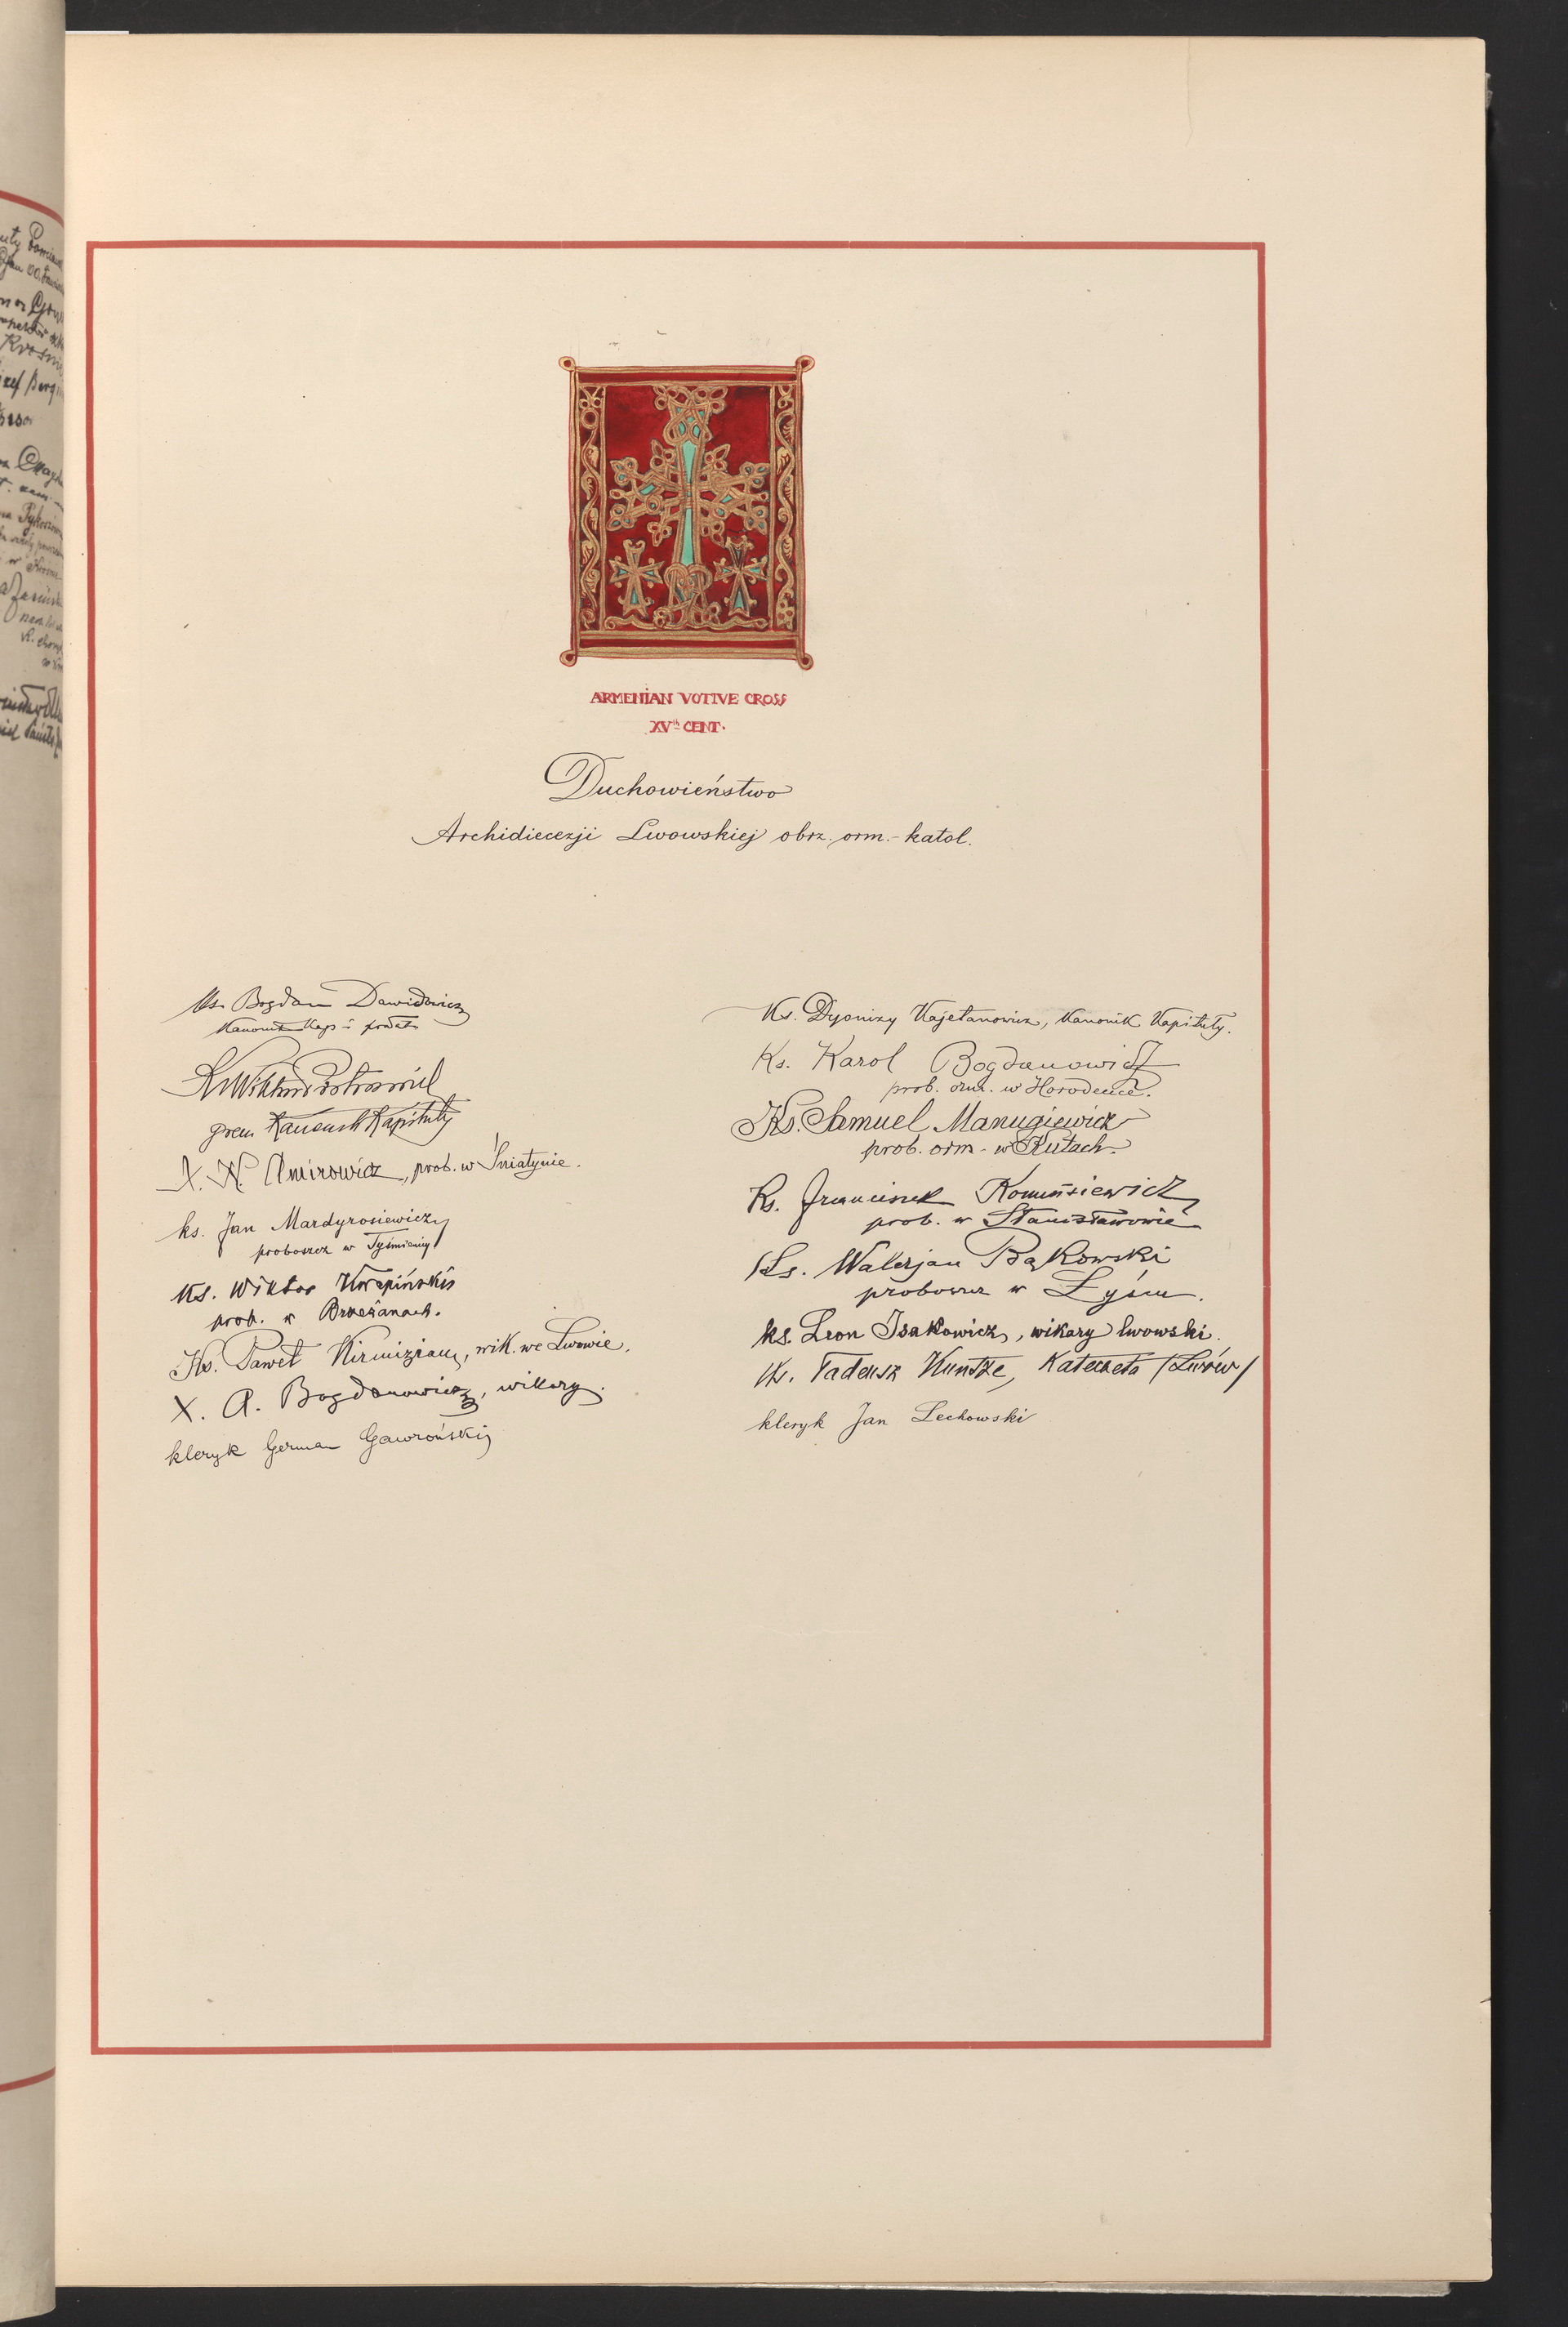 ARMENIAN VOTIVE CROSS
XVth CENT.
Duchowieństwo
Archidiecezji Lwowskiej obrz. orm.-katol.
Ks. Bogdan Dawidowicz
Kanonik Kap.
Ks Wiktor
grem. Kanonik Kapituły
X. N. Amirowicz, prob. w Śniatynie.
ks. Jan Mardyrosiewicz
proboszcz w Tyśmienicy
Ks. Wiktor Kwapiński
prob. w Brzeżanach.
Ks. Paweł Kirmizian, wik. we Lwowie.
X. A. Bogdanowicz, wikary.
kleryk German Gawroński
Ks. Dyonizy Kajetanowicz, Kanonik Kapituły.
Ks. Karol Bogdanowicz
prob. orm. w Horodence.
Ks. Samuel Manugiewicz
prob. orm - w Kutach.
Ks. Franciszek Komusiewicz
prob. w Stanisławowie
Ks. Walerjan Bąkowski
proboszcz w Łyścu.
ks. Leon Isakowicz, wikary lwowski.
Ks. Tadeusz Kuntze, Katecheta /Lwów/
kleryk Jan Lechowski